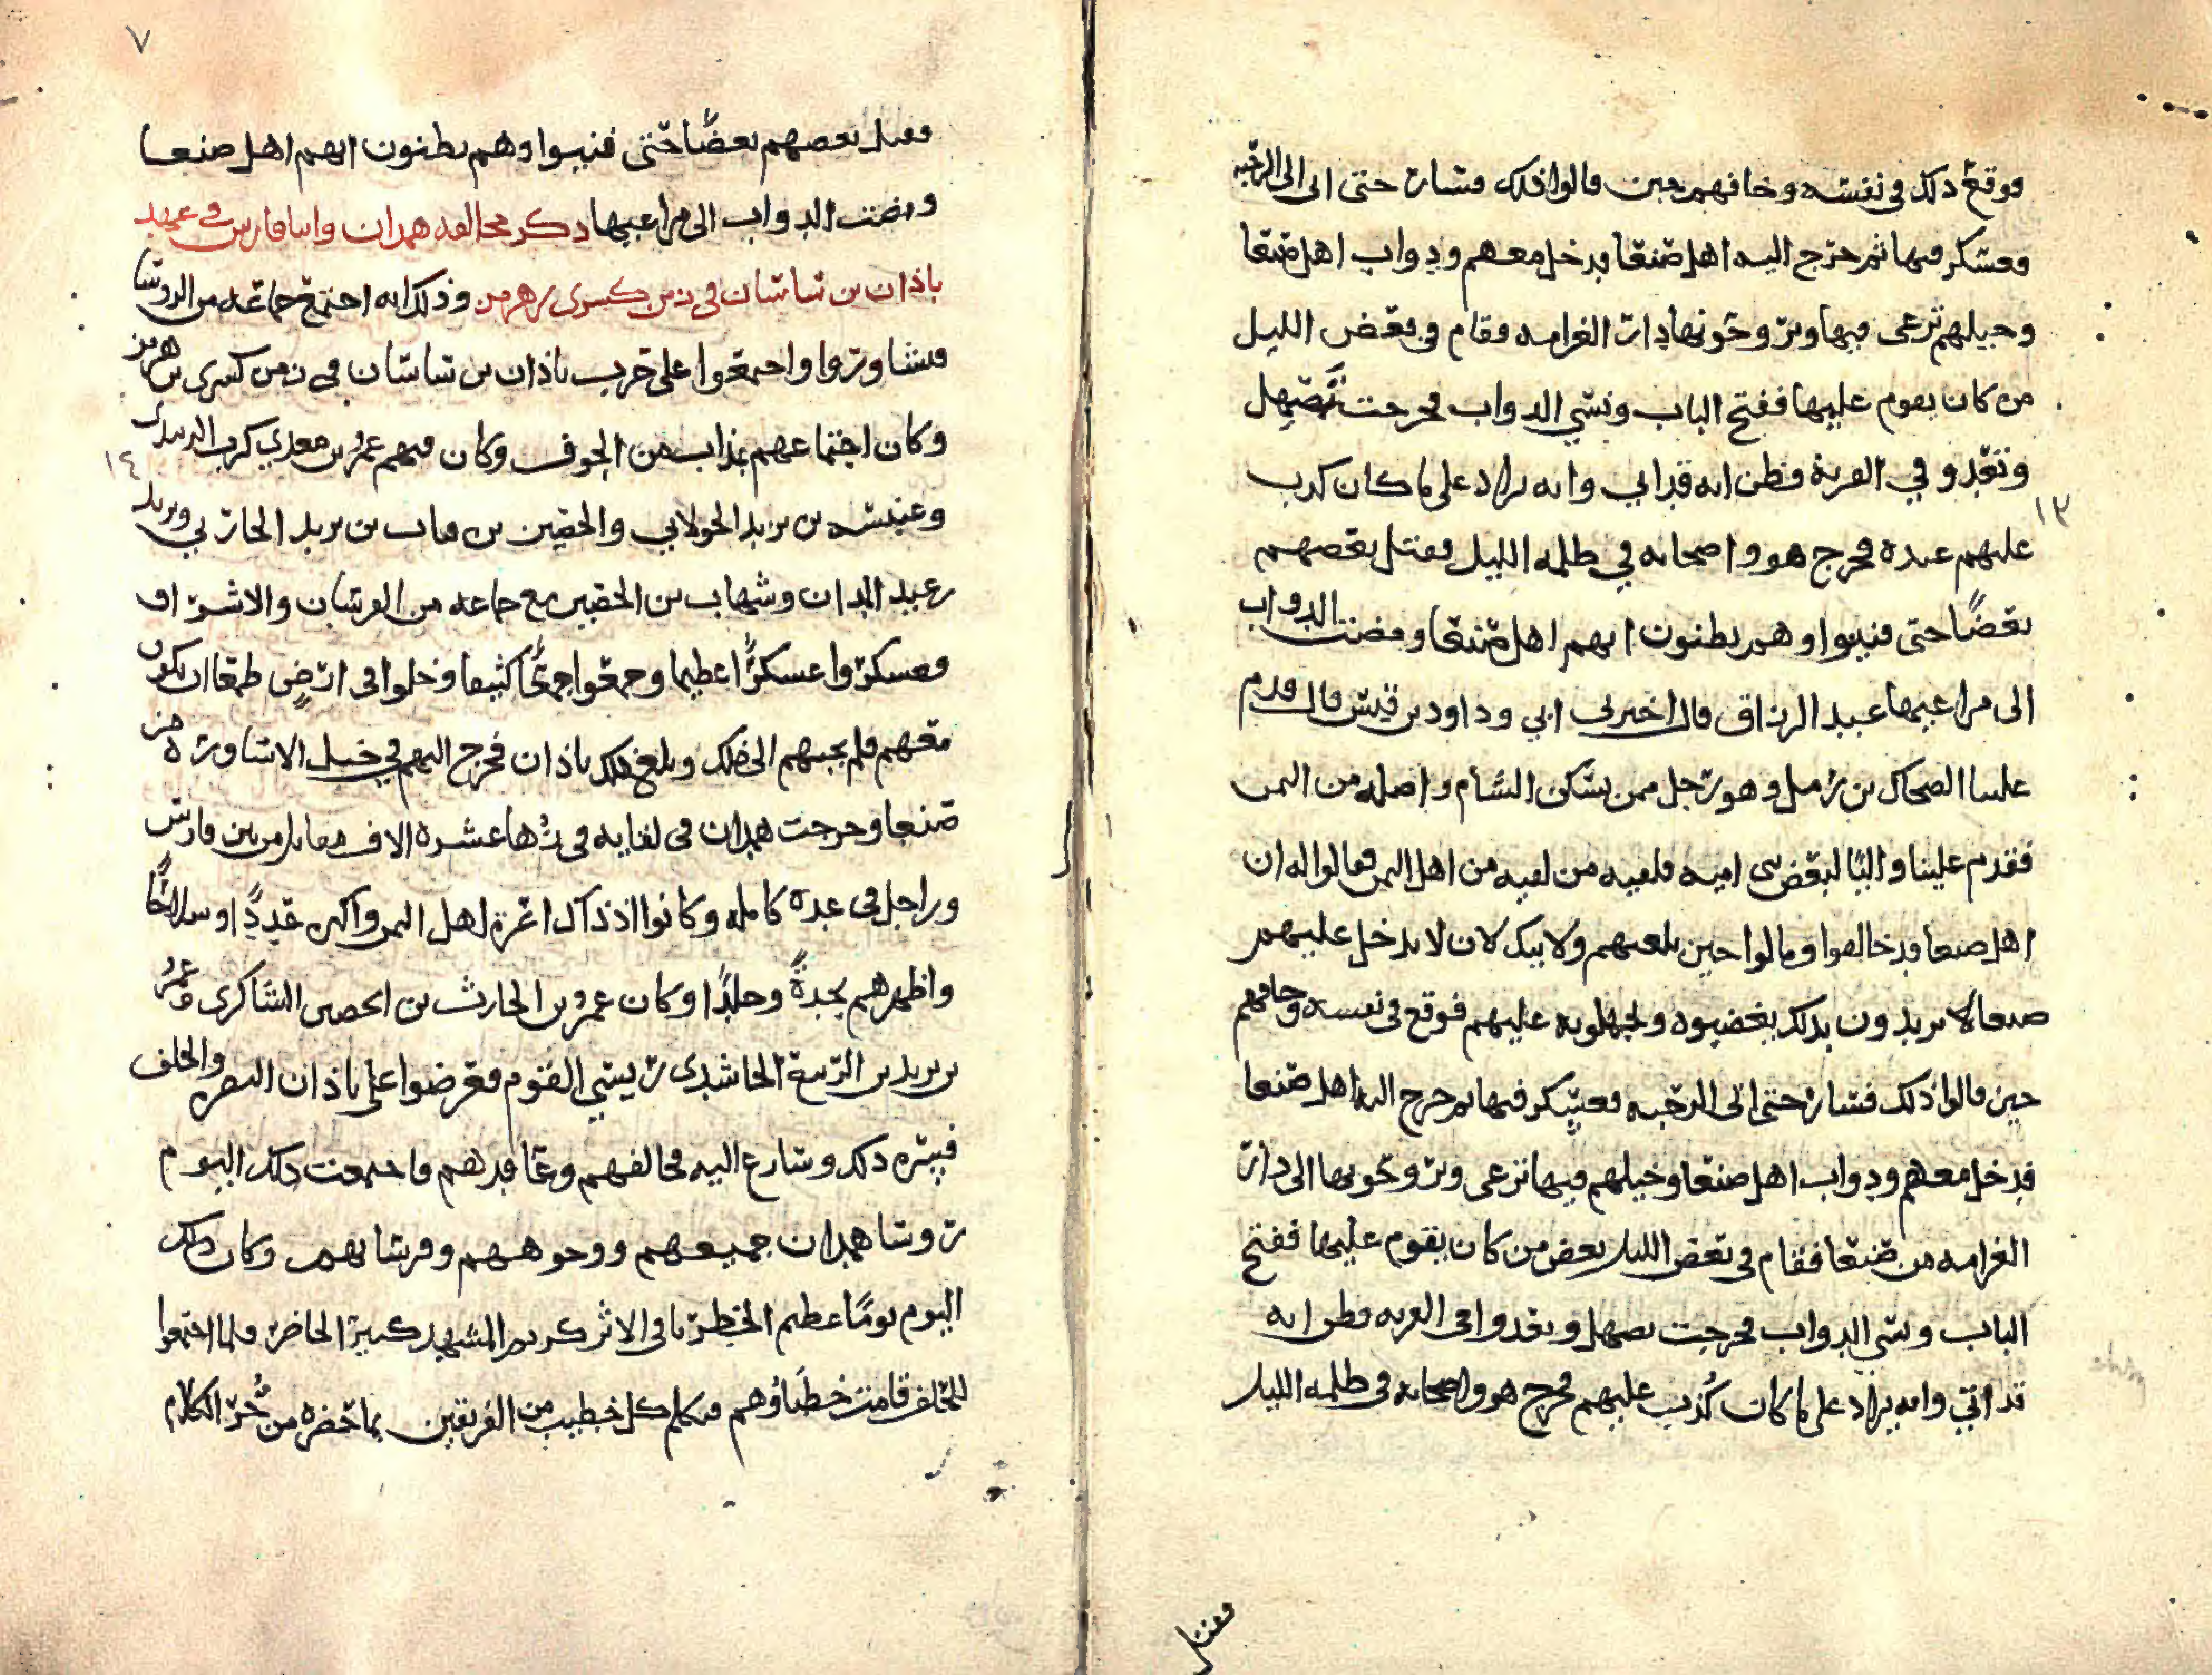 فوقع ذلك في نفسه وخافهم حين قالوا ذلك فسار حتى اتى الى الرحبه
فعسكر فيها ثم خرج اليه اهل صنعا فدخل معهم ودواب اهل صنعا
وخيلهم ترعى فيها ويروحونها دار الغرامه فقام في بعض الليل
من كان يقوم عليها ففتح الباب ونسي الدواب فخرجت تصهل
وتعدو في القرية فظن انه قد اتي وانه يراد على ما كان كذب
١٣
عليهم عنده فخرج هو واصحابه في ظلمه الليل فقتل بعضهم
بعضا حتى فنيوا وهم يظنون انهم اهل صنعا ومضت الدواب
الى مراعيها عبد الرزاق قال اخبرني ابي وداود بن قيس قال قدم
علينا الضحاك بن زمل وهو رجل ممن يسكن الشام واصله من اليمن
فقدم علينا واليا لبعض بني اميه فلقيه من لقيه من اهل اليمن فقالوا له ان
اهل صنعا قد خالفوا وقالوا حين بلغهم ولايتك لان لا يدخل عليهم
صنعا لا يريدون بذلك يغضبوه وليجهلوه عليهم فوقع في نفسه وخافهم
حين قالوا ذلك فسار حتى اتى الرحبه فعسكر فيها ثم خرج اليه اهل صنعا
فدخل معهم ودواب اهل صنعا وخيلهم فيها ترعى ويروحونها الى دار
الغرامه من صنعا فقام في بعض الليل بعض من كان يقوم عليها ففتح
الباب ونسي الدواب فخرجت تصهل وتعدوا في القريه فظن انه
قد اتي وانه يراد على ما كان كذب عليهم فخرج هو واصحابه في ظلمه الليل
فقتل
٧
فقتل بعضهم بعضا حتى فنيوا وهم يظنون انهم اهل صنعا
ومضت الدواب الى مراعيها ذكر محالفه همدان وابنا فارس في عهد
باذان بن ساسان في زمن كسرى بن هرمز وذلك انه اجتمع جماعه من الروسا
فتشاوروا واجمعوا على حرب باذان بن ساسان في زمن كسرى بن هرمز
وكان اجتماعهم بمذاب من الجوف وكان فيهم عمرو بن معدي كرب الزبيدي
١٤
وعنبسه بن يزيد الخولاني والحصين بن قنان بن يزيد الحارثي ويزيد
بن عبد المدان وشهاب بن الحصين مع جماعه من الفرسان والاشراف
فعسكروا عسكرا عظيما وجمعوا جمعا كثيفا ودخلوا في ارض طمعا ان يكون
معهم فلم يجبهم الى ذلك وبلغ ذلك باذان فخرج اليهم في خيل الاساورة من
صنعا وخرجت همدان في لقايه في زها عشره الاف مقاتل من بين فارس
وراجل في عدة كامله وكانوا اذ ذاك اعز اهل اليمن واكثره عددا وسلاحا
واظهرهم نجدة وجلدا وكان عمرو بن الحارث بن الحصين الشاكري وعمرو
بن يزيد بن الربيع الحاشدي رييسي القوم فعرضوا على باذان النصره والحلف
فسره ذلك وسارع اليه فحالفهم وعاقدهم فاجتمعت ذلك اليوم
روسا همدان جميعهم ووجوههم وفرسانهم وكان ذلك
اليوم يوما عظيم الخطر باقي الاثر كريم المشهد كبير الحاضر فلما اجتمعوا
للحلف قامت خطباؤهم فتكلم كل خطيب من الفريقين بما حضره من حر الكلام